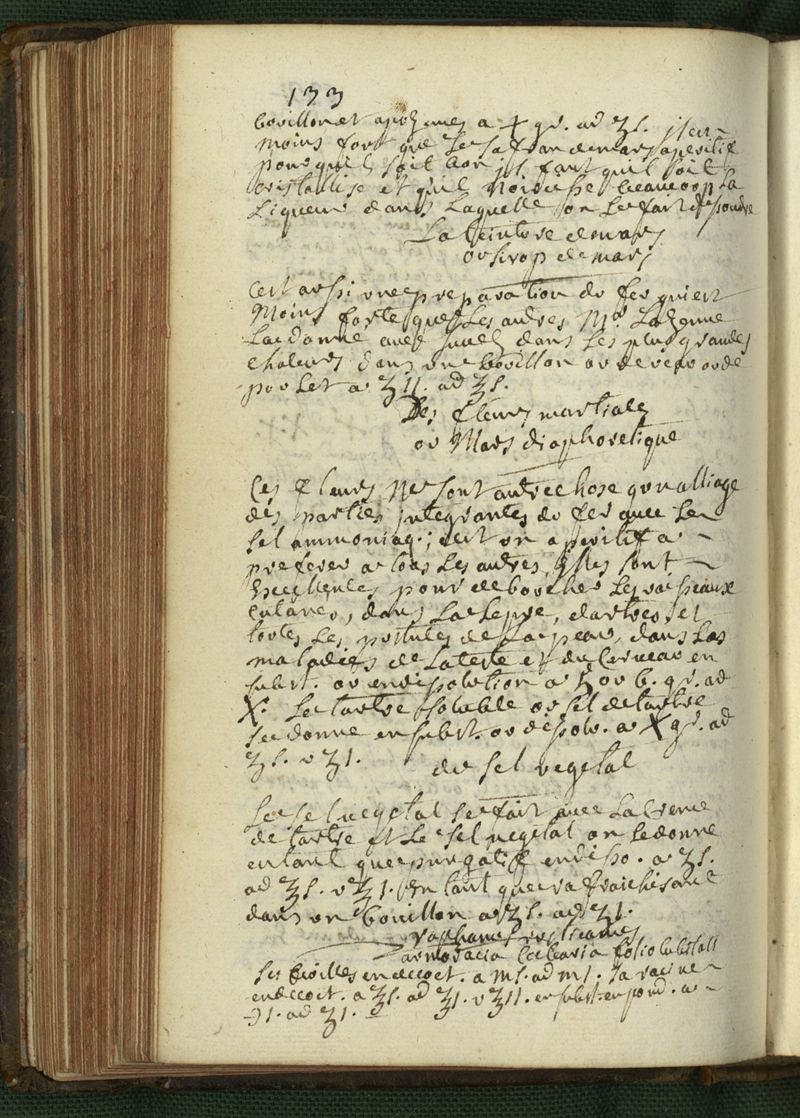 133
bouillon et apozemes a X gr. ad ʒ s. il est
moins fort que le safran de mars aperitif
pour quil soit bon il faut quil soit
cristallisé et quil noircisse beaucoup la
liqueur dans laquelle on le fait dissoudre
La teinture de mars
ou sirop de mars
Cest aussi une preparation du fer qui est
moins forte que les autres Mr.
La donne avec dans les plus grandes
chaleurs dans un bouillon ou
poulet a ʒ ij. ad ʒ s.
Des fleurs martiales
ou Mars diaphoretique
Ces fleurs ne sont autre chose qun alliage
des parties integrantes du fer avec le
sel ammoniaq; cest un aperitif a
preferer a tous les autres, elles sont
Excellentes pour deboucher les vaisseaux
cutanes, dans la lepre, dartres, et
toutes les pustules de la peau, dans les
maladies de la teste et du cerveau en
subst. ou en dissolution a 5 ou 6. gr. ad
X. Le tartre soluble ou sel de tartre
se donne en subst. ou dissolu. a X gr. ad
ʒ s. v ʒ 1.
du sel vegetal
Le sel vegetal se fait avec la creme
de tartre et le sel vegetal on le donne
entant que purgatif en disso. a ʒ s.
ad ʒ s. v ʒ 1. En tant que rafraichissant
dans un bouillon a ʒ s. ad ʒ 1.
raphanus rusticanus
armoracia cochlearia folio
les feuilles en decoct. a m s. ad m 1. la racine
en decoct. a ʒ s. ad ʒ 1. v ʒ 11. en subst. en poud. a
℈ 1. ad ʒ 1.